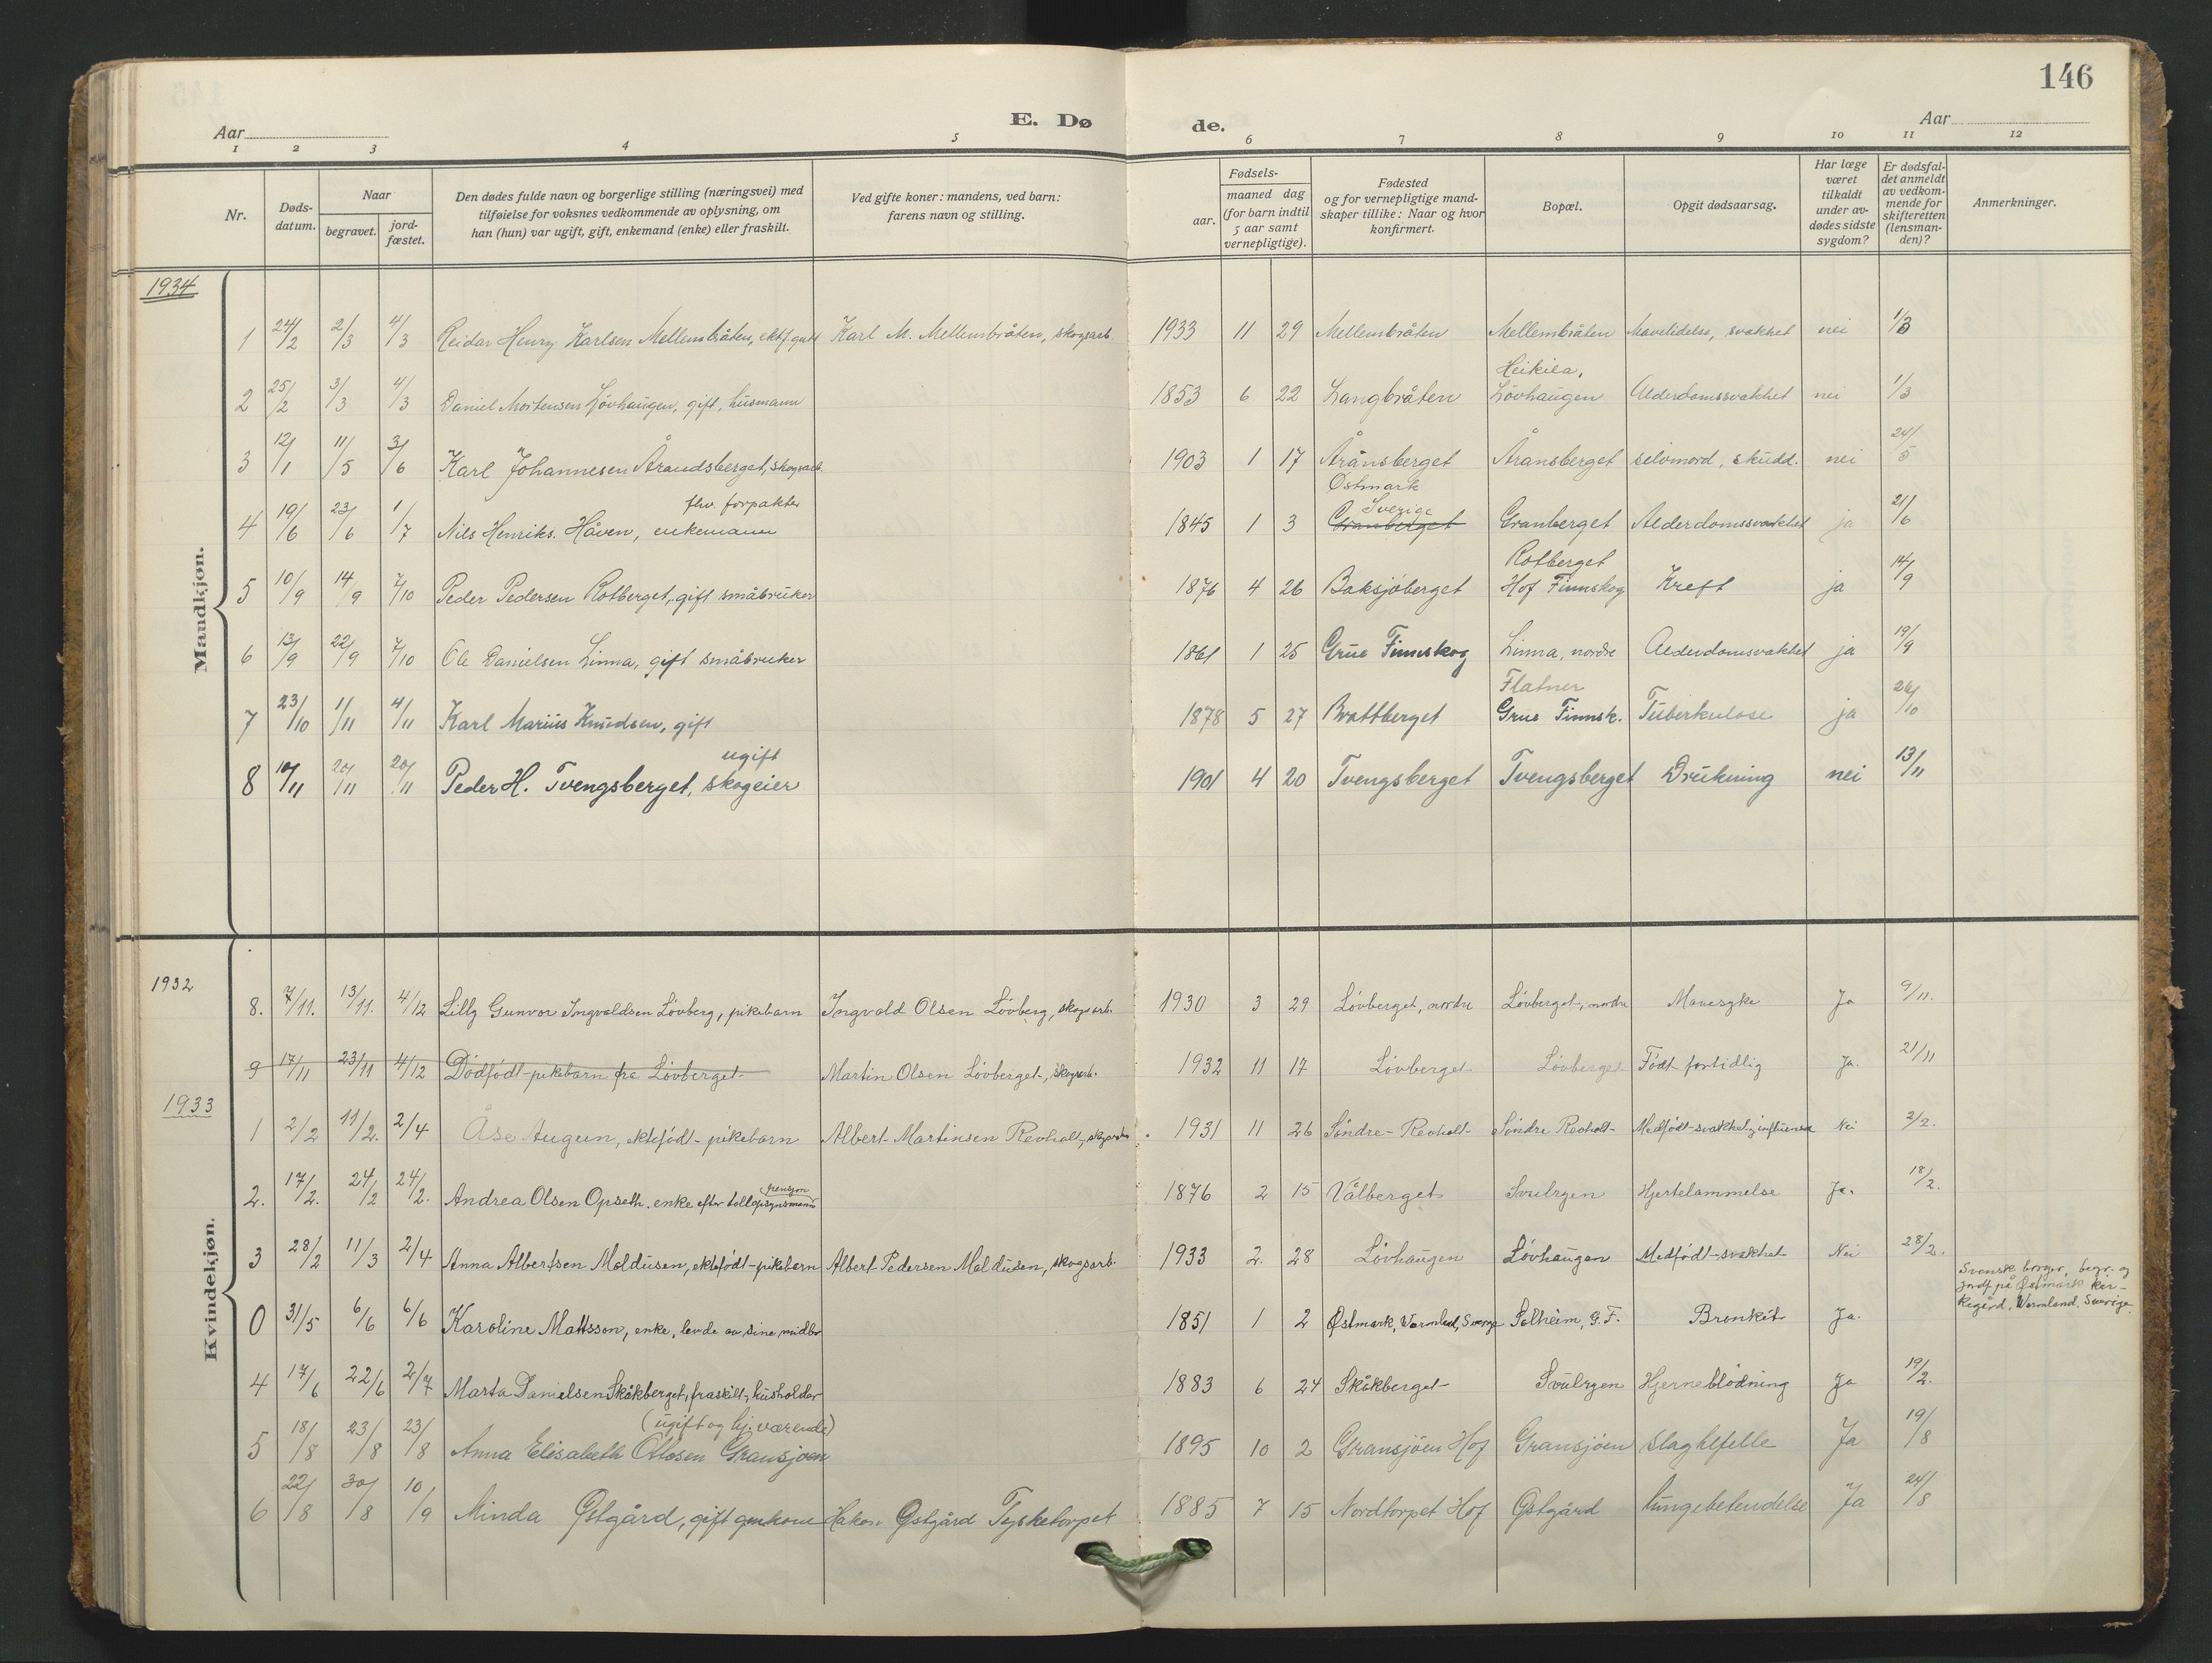 146
E. Døde.
Aar
Aar
1 2 3 4 5 6 7 8 9 10 11 12
Nr.
Døds-datum.
Naar
begravet.
jord-fæstet.
Den dødes fulde navn og borgerlige stilling (næringsvei) med
tilføielse for voksnes vedkommende av oplysning, om
han (hun) var ugift, gift, enkemand (enke) eller fraskilt.
Ved gifte koner: mandens, ved barn:
farens navn og stilling.
Fødsels-
aar.
maaned dag
(for barn indtil
5 aar samt
vernepligtige).
Fødested
og for vernepligtige mand-
skaper tillike: Naar og hvor
konfirmert.
Bopæl.
Opgit dødsaarsag.
Har læge
været
tilkaldt
under av-
dødes sidste
sygdom?
Er dødsfal-
det anmeldt
av vedkom-
mende for
skifteretten
(lensman-
den)?
Anmerkninger.
Mandkjøn.
1934
1 24/2 2/3 4/3 Reidar Henry Karlsen Mellembråten, ektf. gutt Karl M. Mellembråten, skogsarb. 1933 11 29 Mellembråten Mellembråten Mavelidelse, svakhet nei 1/3
Heikila,
2 25/2 3/3 4/3 Daniel Mortensen Lövhaugen, gift, husmann 1853 6 22 Langbråten Lövhaugen Alderdomssvakhet nei 1/3
3 12/1 11/5 3/6 Karl Johannesen Årandsberget, skogsarb. 1903 1 17 Åransberget Åransberget selvmord, skudd. nei 24/5
Østmark
fhv. forpakter Sverige
4 19/6 23/6 1/7 Nils Henriks. Håven, enkemann 1845 1 3 Granberget Granberget Alderdomssvakhet ja 21/6
Rotberget
5 10/9 14/9 7/10 Peder Pedersen Rotberget, gift småbruker 1876 4 26 Baksjöberget Hof Finnskog Kreft ja 14/9
6 13/9 22/9 7/10 Ole Danielsen Linna, gift småbruker 1861 1 25 Grue Finnskog Linna, nordre Alderdomsvakhet ja 19/9
Flatner
7 23/10 1/11 4/11 Karl Marius Knudsen, gift 1878 5 27 Brattberget Grue Finnsk. Tuberkulose ja 26/10
ugift
8 10/11 20/11 20/11 Peder H. Tvengsberget, skogeier 1901 4 20 Tvengsberget Tvengsberget Drukning nei 13/11
Kvindekjøn.
1932
8. 7/11. 13/11. 4/12 Lilly Gunvor Ingvaldsen Lövberg, pikebarn Ingvald Olsen Lövberg, skogsarb. 1930 3 29 Lövberget, nordre Lövberget, nordre Mavesyke Ja 9/11.
9 17/11 23/11 4/12 Dödfödt pikebarn fra Lövberget Martin Olsen Lövberget, skogsarb. 1932 11 17 Lövberget Lövberget Födt fortidlig Ja. 21/11
1933
1 2/2 11/2. 2/4 Åse Augun, ektefödt pikebarn Albert Martinsen Revholt, 1931 11 26 Söndre Revholt Söndre Revholt Medfödt svakhet, influensa Nei 2/2.
pensjon
2. 17/2. 24/2 24/2. Andrea Olsen Opseth. enke efter tollopsynsmann 1876 2 15 Vålberget Svulrygen Hjertelammelse Ja. 18/2.
3 28/2 11/3 2/4 Anna Albertsen Moldusen, ektefödt pikebarn Albert Pedersen Moldusen, skogsarb. 1933 2. 28 Lövhaugen Lövhaugen Medfödt svakhet Nei 28/2.
Svensk borger, begr. og
jordf. på Østmark kir-
kegård, Vermland, Sverige.
0 31/5 6/6 6/6 Karoline Mattsson, enke, levde av sine midler 1851 1 2 Østmark, Vermland, Sverige Solheim, G. F. Bronkit Ja.
4 17/6 22/6 2/7 Marta Danielsen Skåkberget, fraskilt, husholder 1883 6 24 Skåkberget Svulrygen Hjerneblödning Ja 19/2.
(ugift og hj. værende)
5 18/8 23/8 23/8 Anna Elisabeth Olosen Gransjöen 1895 10 2 Gransjöen Hof Gransjöen slagtilfelle Ja 19/8
6 22/8 30/8 10/9 Minda Østgård, gift Hakon Østgård Tysketorpet 1885 7 15 Nordtorpet Hof Østgård lungebetendelse Ja 24/8